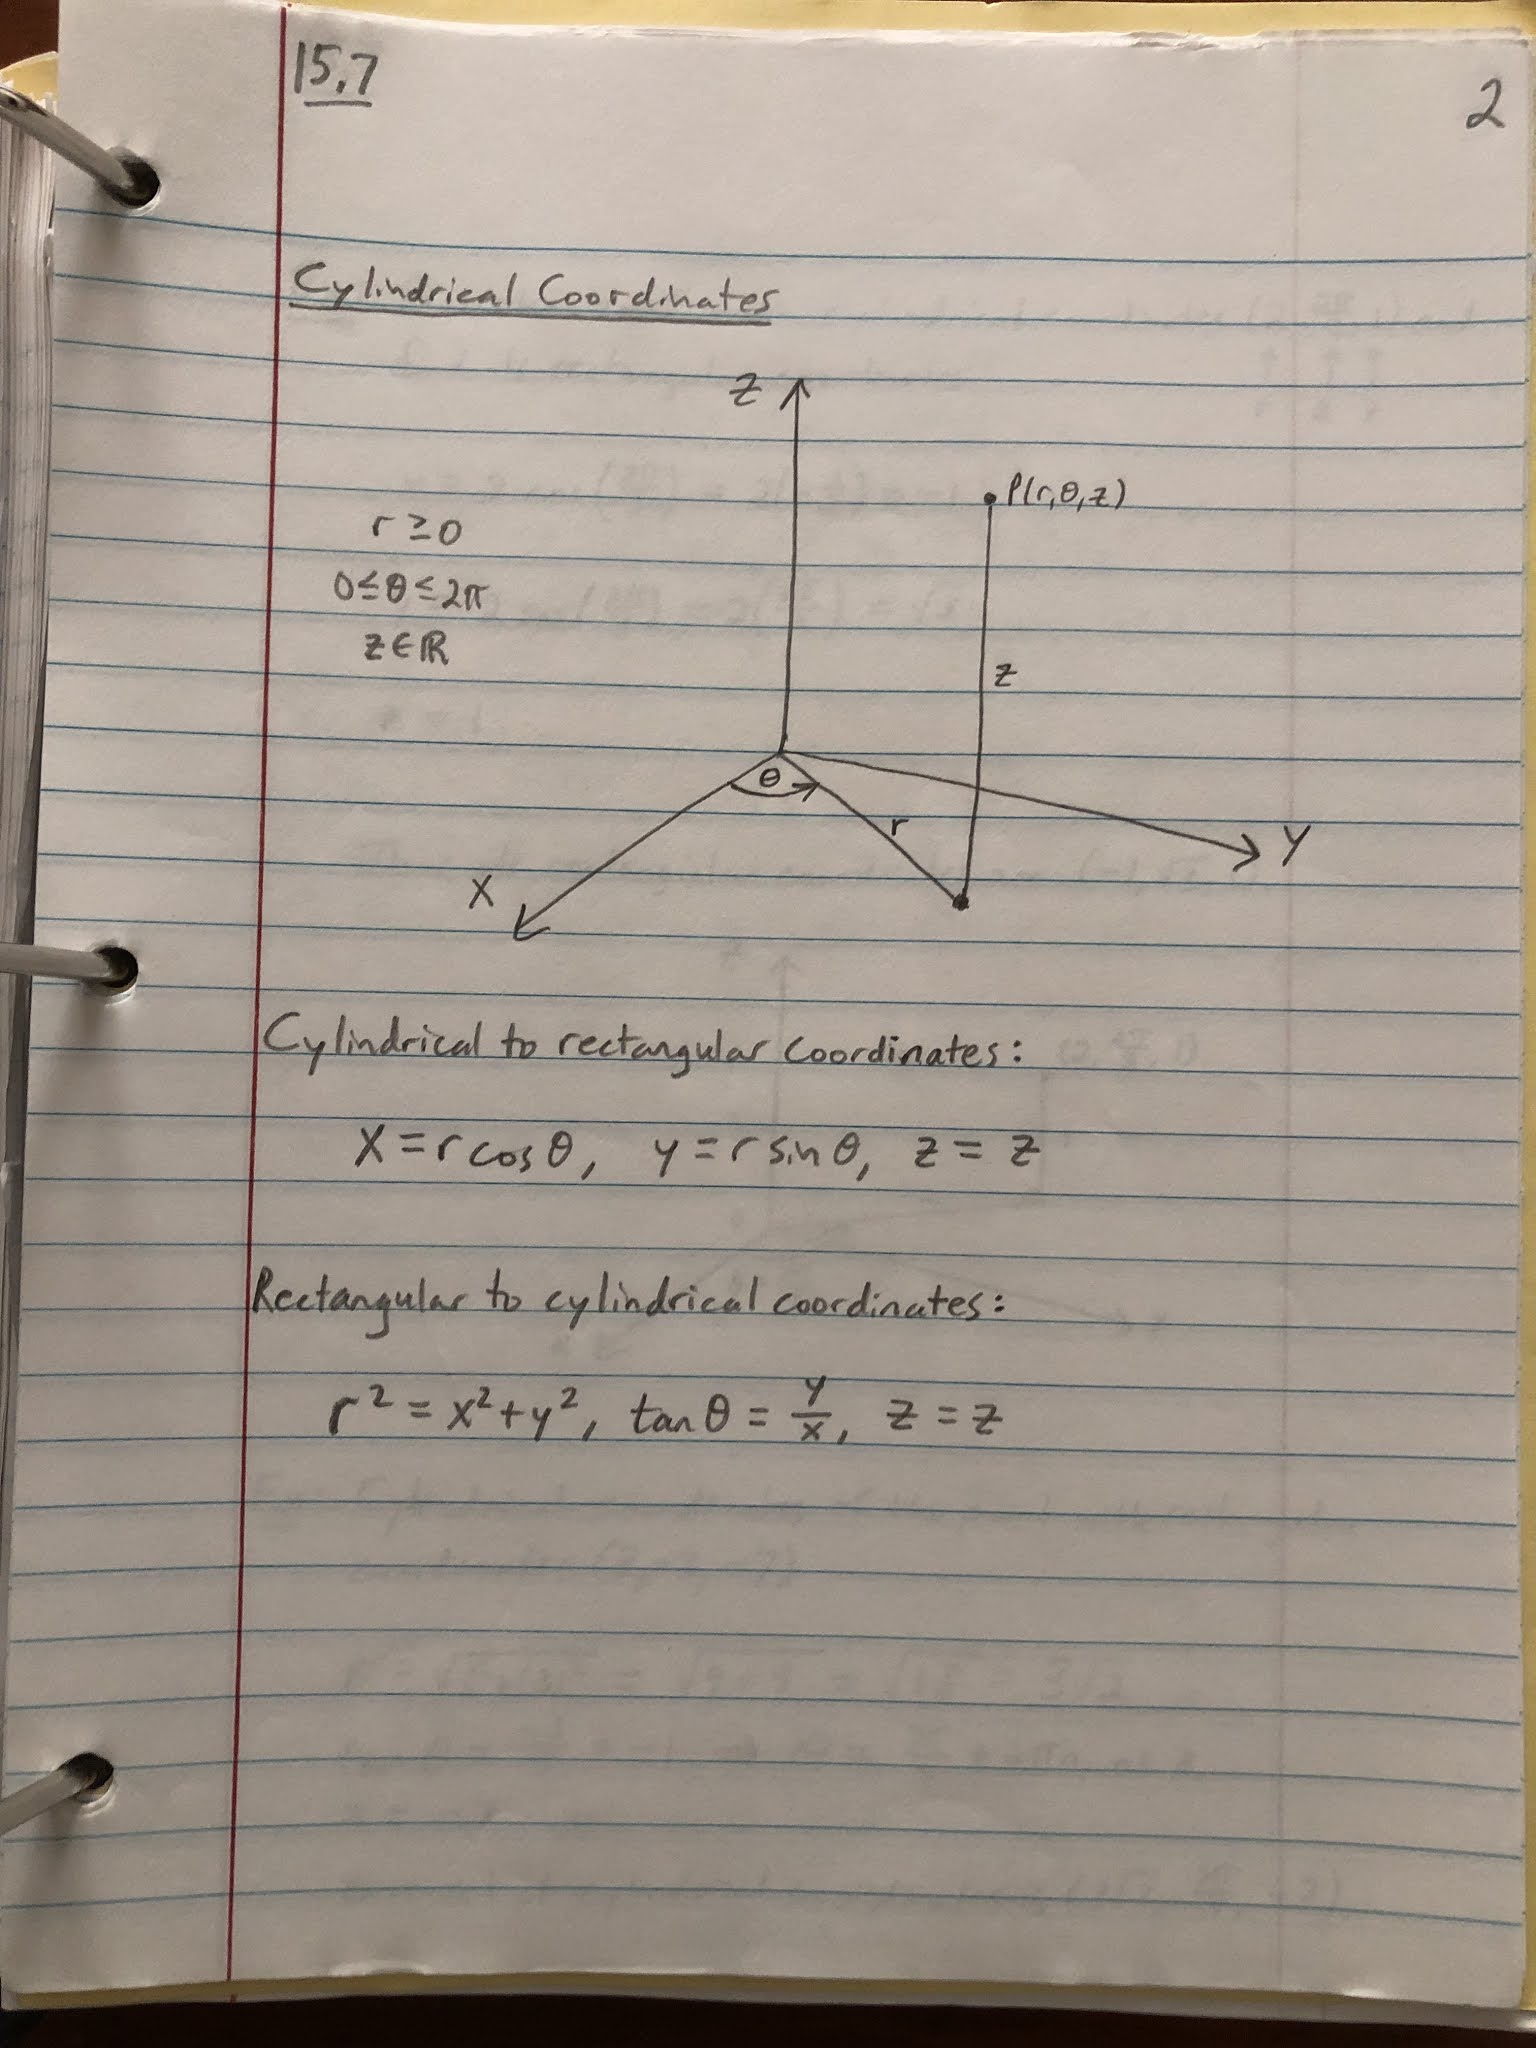 15.7
2
Cylindrical Coordinates
z
P(r,θ,z)
r ≥ 0
0 ≤ θ ≤ 2π
z ∈ ℝ
z
θ
r
y
x
Cylindrical to rectangular coordinates:
x = r cos θ, y = r sin θ, z = z
Rectangular to cylindrical coordinates:
r² = x² + y², tan θ = y/x, z = z